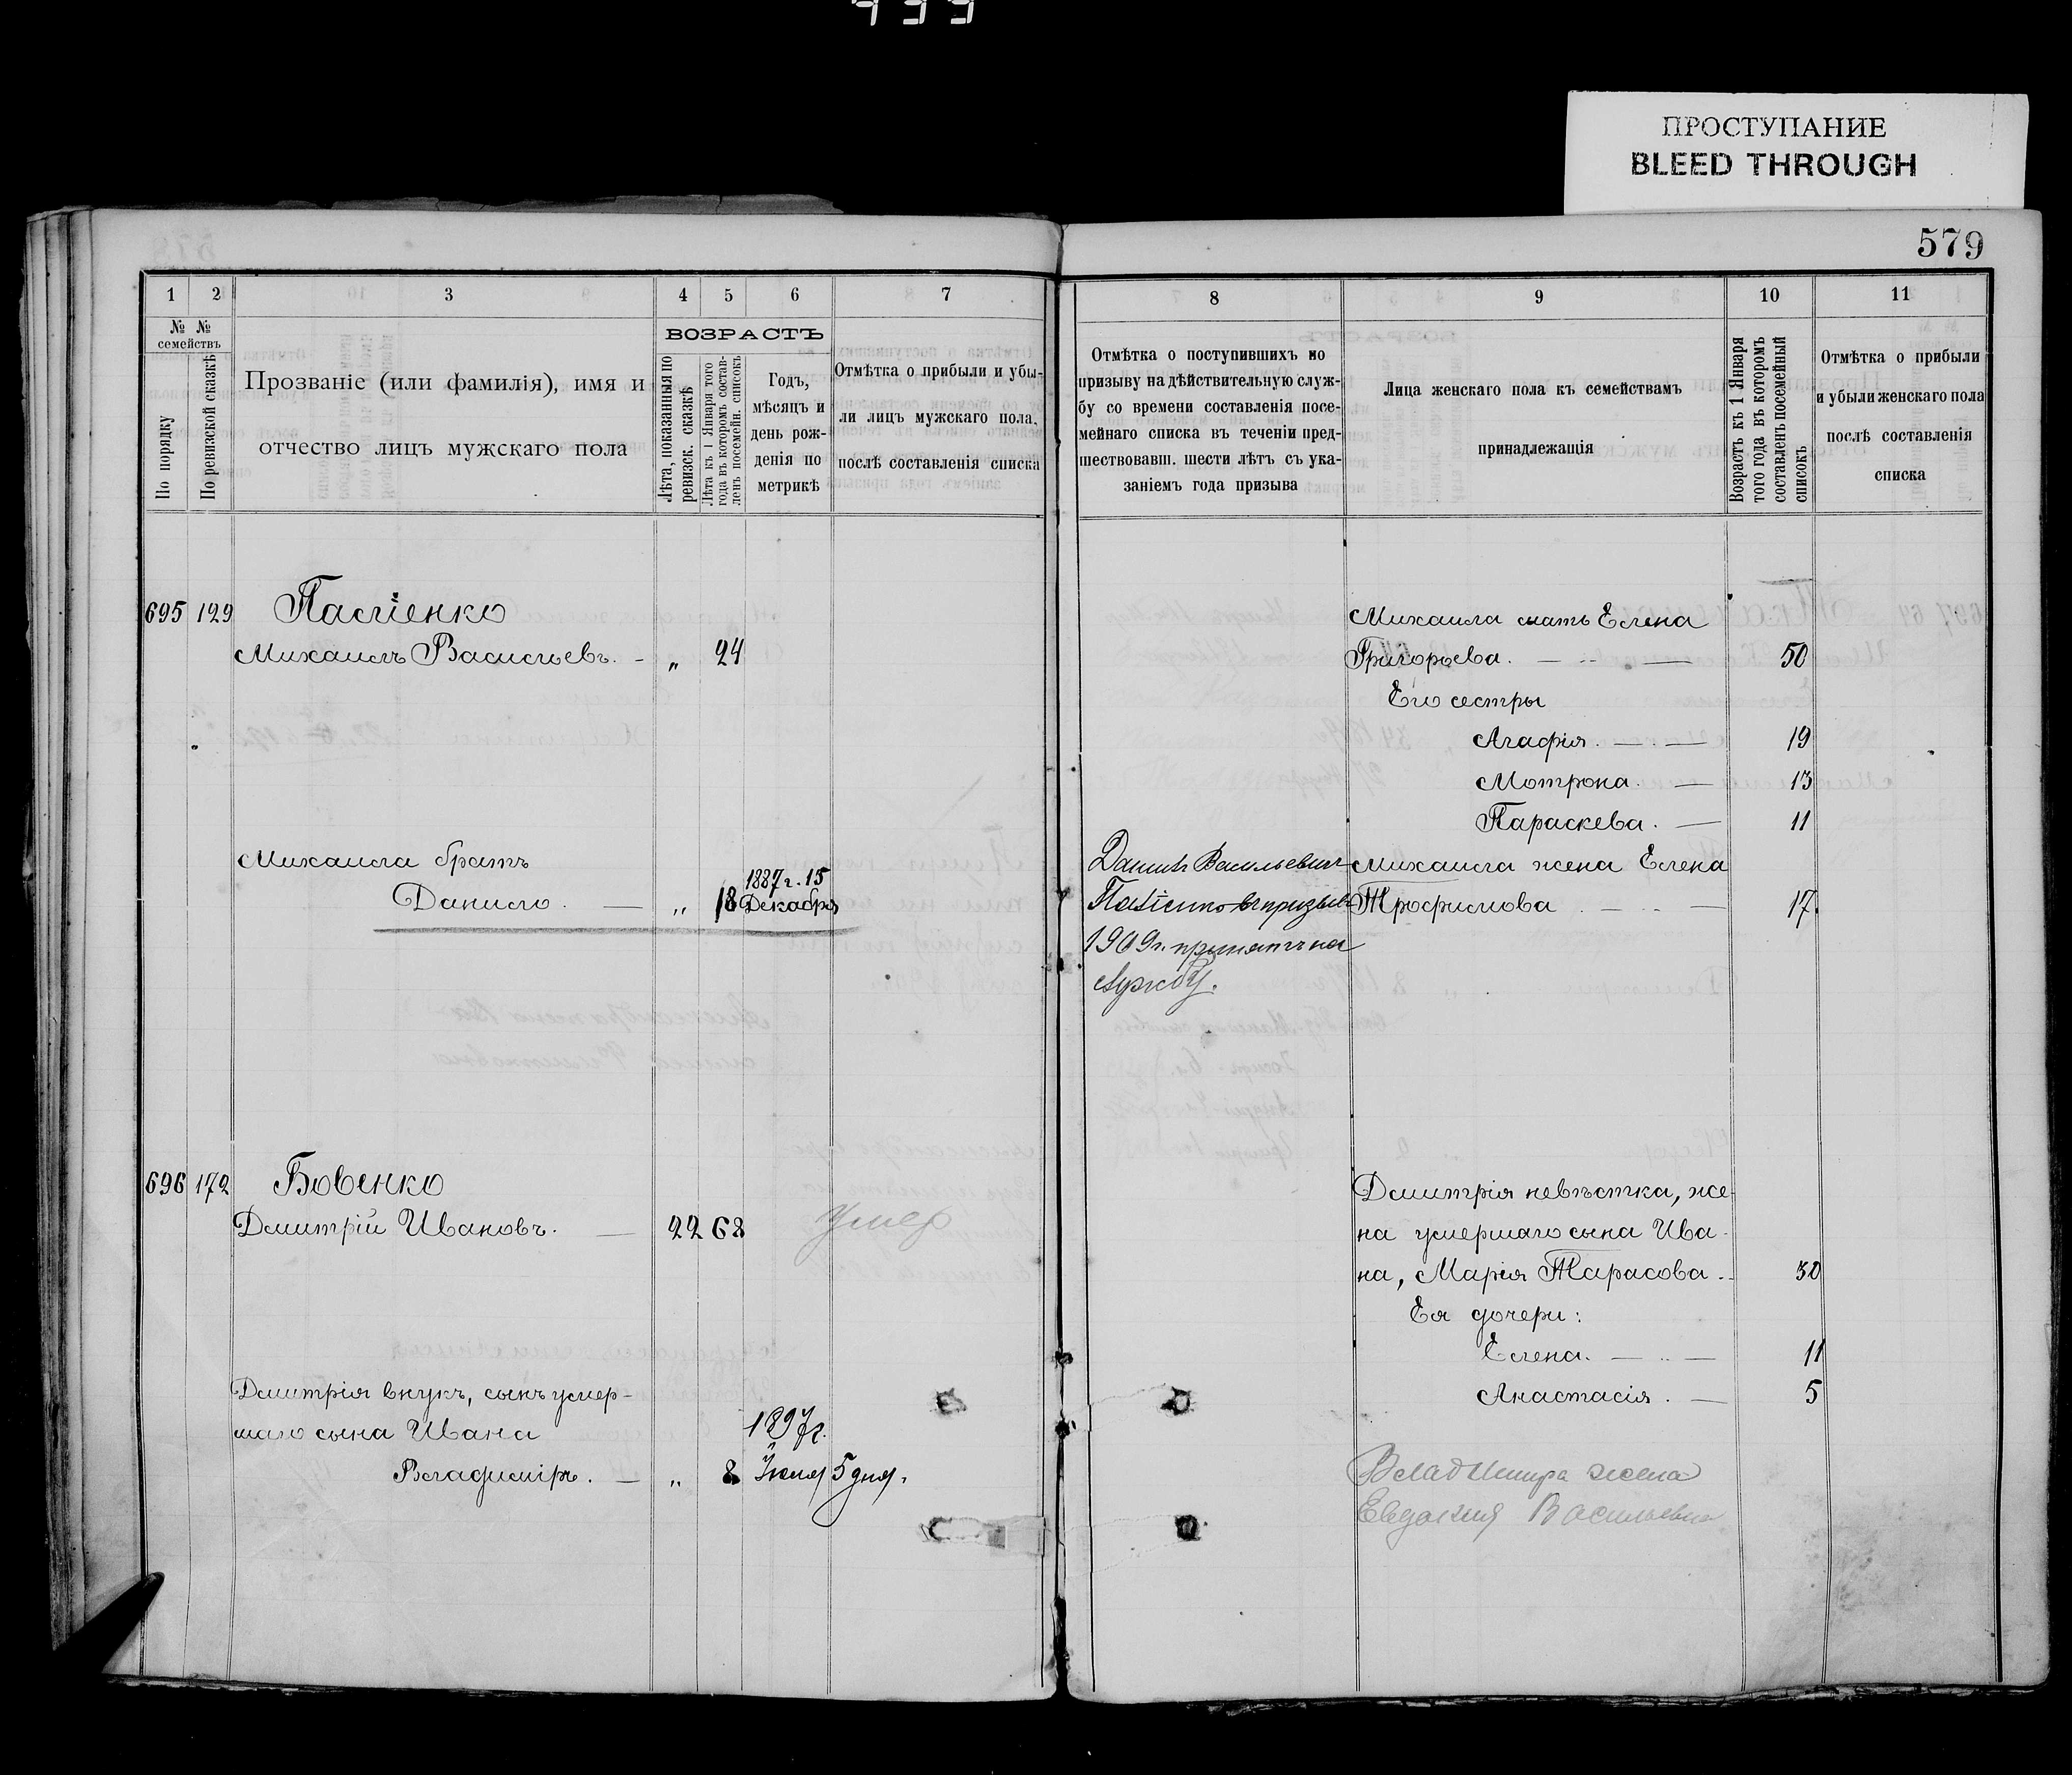 ПРОСТУПАНИЕ
BLEED THROUGH
579
1 2 3 4 5 6 7
№ № семействъ
По порядку
По ревизской сказкѣ
Прозваніе (или фамилія), имя и
отчество лицъ мужскаго пола
ВОЗРАСТЪ
Лѣта, показанныя по
ревизск. сказкѣ
Лѣта къ 1 Января того
года въ которомъ состав-
ленъ посемейн. списокъ
Годъ,
мѣсяцъ и
день рож-
денія по
метрикѣ
Отмѣтка о прибыли и убы-
ли лицъ мужскаго пола,
послѣ составленія списка
8 9 10 11
Отмѣтка о поступившихъ по
призыву на дѣйствительную служ-
бу со времени составленія посе-
мейнаго списка въ теченіи пред-
шествовавш. шести лѣтъ съ ука-
заніемъ года призыва
Лица женскаго пола къ семействамъ
принадлежащія
Возрастъ къ 1 Января
того года въ которомъ
составленъ посемейный
списокъ
Отмѣтка о прибыли
и убыли женскаго пола
послѣ составленія
списка
695 129
Михаилъ Васильевъ. - „ 24
Михаила братъ
Данило. — „ 18 1887 г. 15
Декабря
696 172 Бовенко
Дмитрій Ивановъ. — 22 68 умер
Дмитрія внукъ, сынъ умер-
шаго сына Ивана
Владиміръ. — „ 8 1897 г.
Іюня 5 дня.
Михаила мать Елена
Григорьева. — 50
Его сестры
Агафія. — 19
Мотрона. — 13
Параскева. — 11
Данилъ Васильевич
въ призывъ
1909 г. принятъ на
службу.
Михаила жена Елена
Трофимова — 17.
Дмитрія невѣстка, же-
на умершаго сына Ива-
на, Марія Тарасова. 30
Ея дочери:
Елена. — 11
Анастасія. — 5
Владимира жена
Евдокия Васильевна